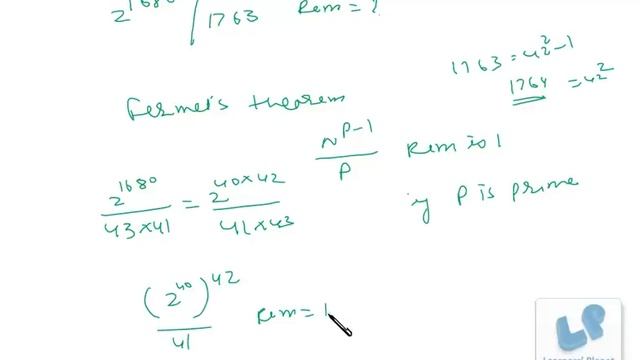 2^1680 / 1763 Rem = ?
1763 = 42^2 - 1
1764 = 42^2
Fermet's theorem
N^P-1 / P Rem is 1
if P is prime
2^1680 / 43 × 41 = 2^40×42 / 41 × 43
(2^40)^42 / 41 Rem = 1
LP